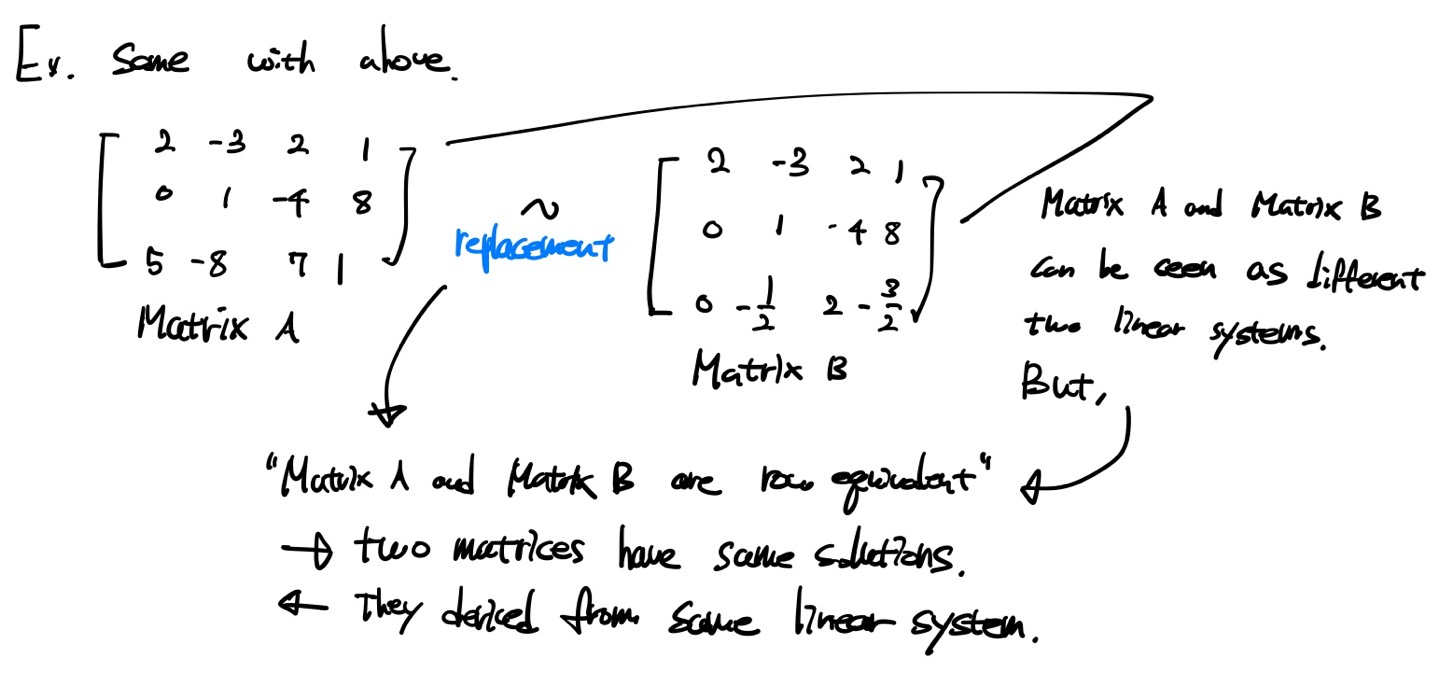 Ex. Same with above.
2 -3 2 1
0 1 -4 8
5 -8 7 1
Matrix A
~
replacement
2 -3 2 1
0 1 -4 8
0 -1/2 2 -3/2
Matrix B
Matrix A and Matrix B
can be seen as different
two linear systems.
But,
"Matrix A and Matrix B are row equivalent"
→ two matrices have same solutions.
← They derived from same linear system.